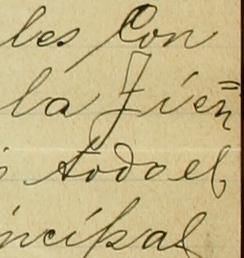 les Con
la Jien=
todo el
incipal